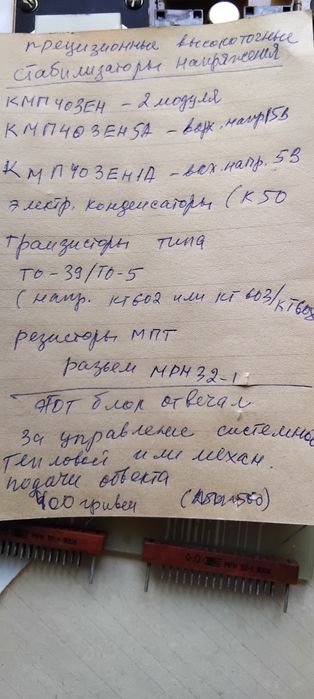 прецизионные высокоточные
стабилизаторы напряжения
КМП403ЕН – 2 модуля
КМП403ЕН5А – вых. напр 15В
КМП403ЕН1А – вых. напр. 5В
электр. конденсаторы (К50
транзисторы типа
ТО-39/ТО-5
(напр. КТ602 или КТ603/КТ608
резисторы МПТ
разъем МРН32-1
этот блок отвечал
за управление системной
тепловой или механ.
подачи обвекта
400 гривен
МРН 32-1
МРН 32-1